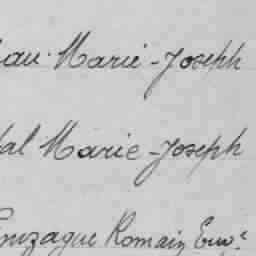 au. Marie-Joseph
al Marie-Joseph
onzague Romain Euv.e